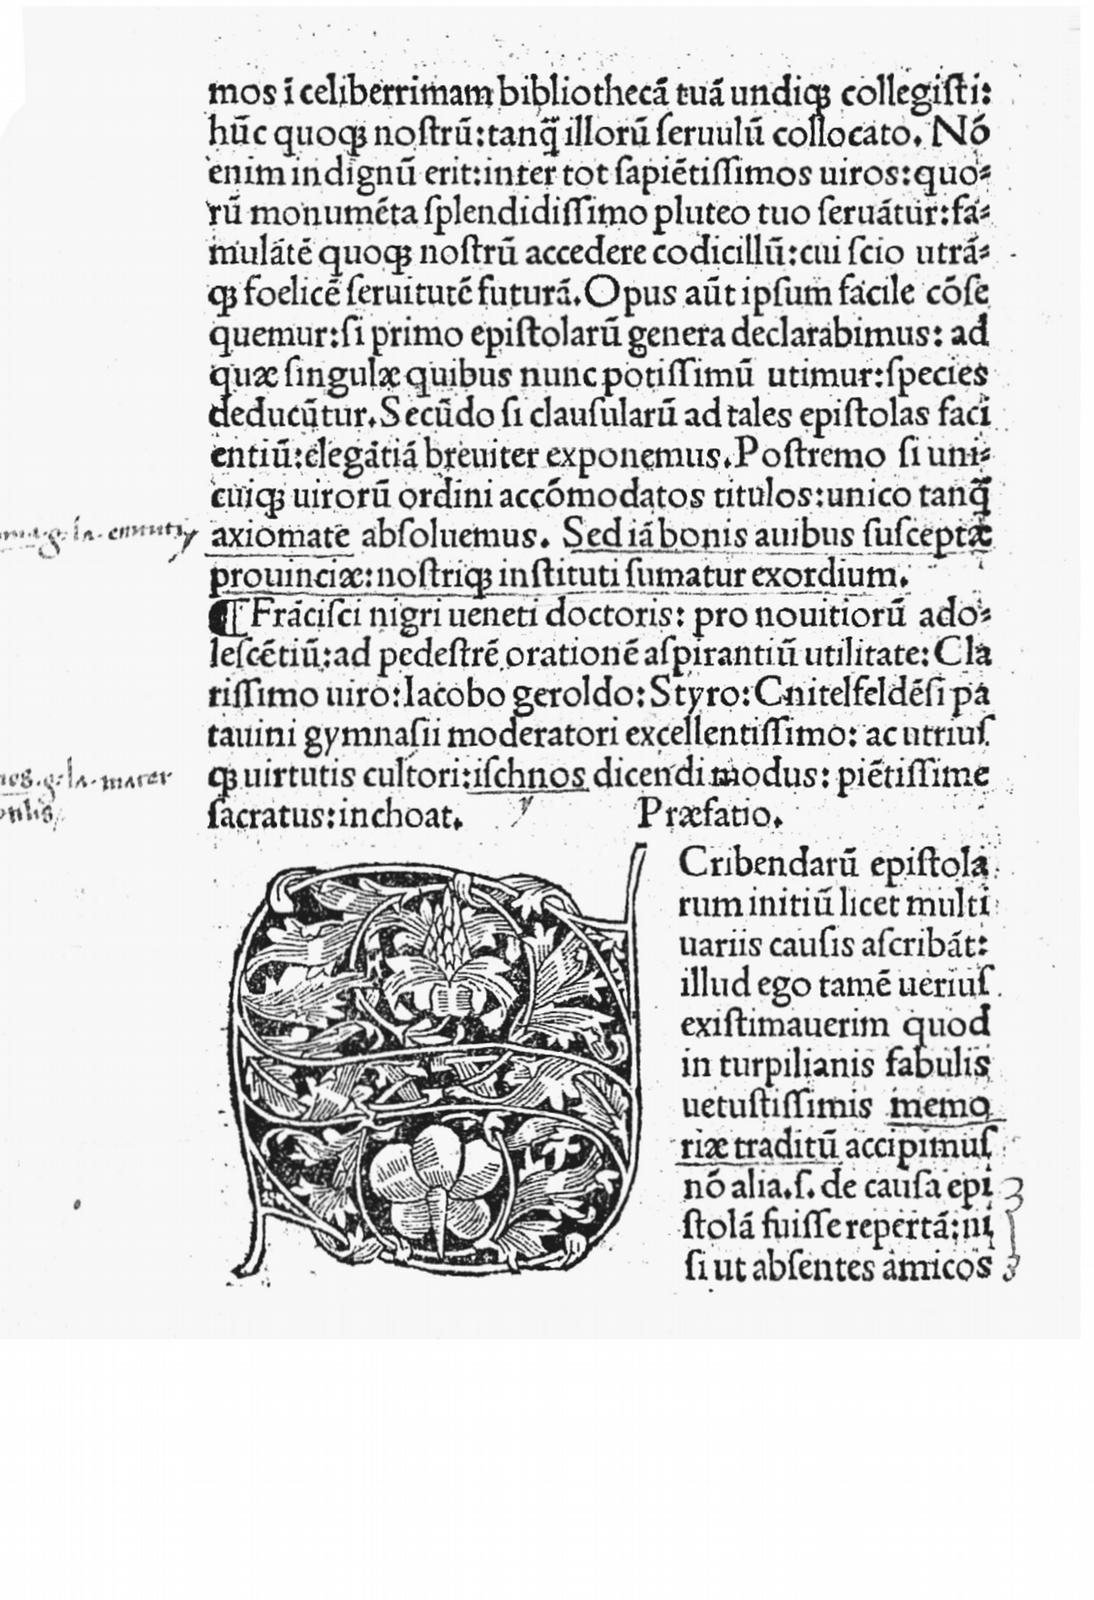 mos ī celiberrimam bibliothecā tuā undiqꝫ collegiſti:
hūc quoqꝫ noſtrū:tanq̃ illorū ſeruulū collocato. Nō
enim indignū erit:inter tot ſapiētiſſimos uiros:quo⸗
rū monumēta ſplendidiſſimo pluteo tuo ſeruātur:fa⸗
mulātē quoqꝫ noſtrū accedere codicillū:cui ſcio utrā⸗
qꝫ foelicē ſeruitutē futurā. Opus aūt ipſum facile cōſe
quemur:ſi primo epiſtolarū genera declarabimus: ad
quæ ſingulæ quibus nunc potiſſimū utimur:ſpecies
deducūtur. Secūdo ſi clauſularū ad tales epiſtolas faci
entiū:elegātiā breuiter exponemus. Poſtremo ſi uni⸗
cuiqꝫ uirorū ordini accōmodatos titulos:unico tanq̃
axiomate abſoluemus. Sed iā bonis auibus ſuſceptæ
prouinciæ:noſtriqꝫ inſtituti ſumatur exordium.
¶ Frāciſci nigri ueneti doctoris: pro nouitiorū ado⸗
leſcētiū:ad pedeſtrē orationē aſpirantiū utilitate: Cla
riſſimo uiro:Iacobo geroldo: Styro: Cnitelfeldēſi pa
tauini gymnaſii moderatori excellentiſſimo: ac utriuſ
qꝫ uirtutis cultori:iſchnos dicendi modus: piētiſſime
ſacratus:inchoat. Præfatio.
SCribendarū epiſtola
rum initiū licet multi
uariis cauſis aſcribāt:
illud ego tamē ueriuſ
exiſtimauerim quod
in turpilianis fabulis
uetuſtiſſimis memo
riæ traditū accipimuſ
nō alia.ſ. de cauſa epi
ſtolā fuiſſe repertā:ni
ſi ut abſentes amicos